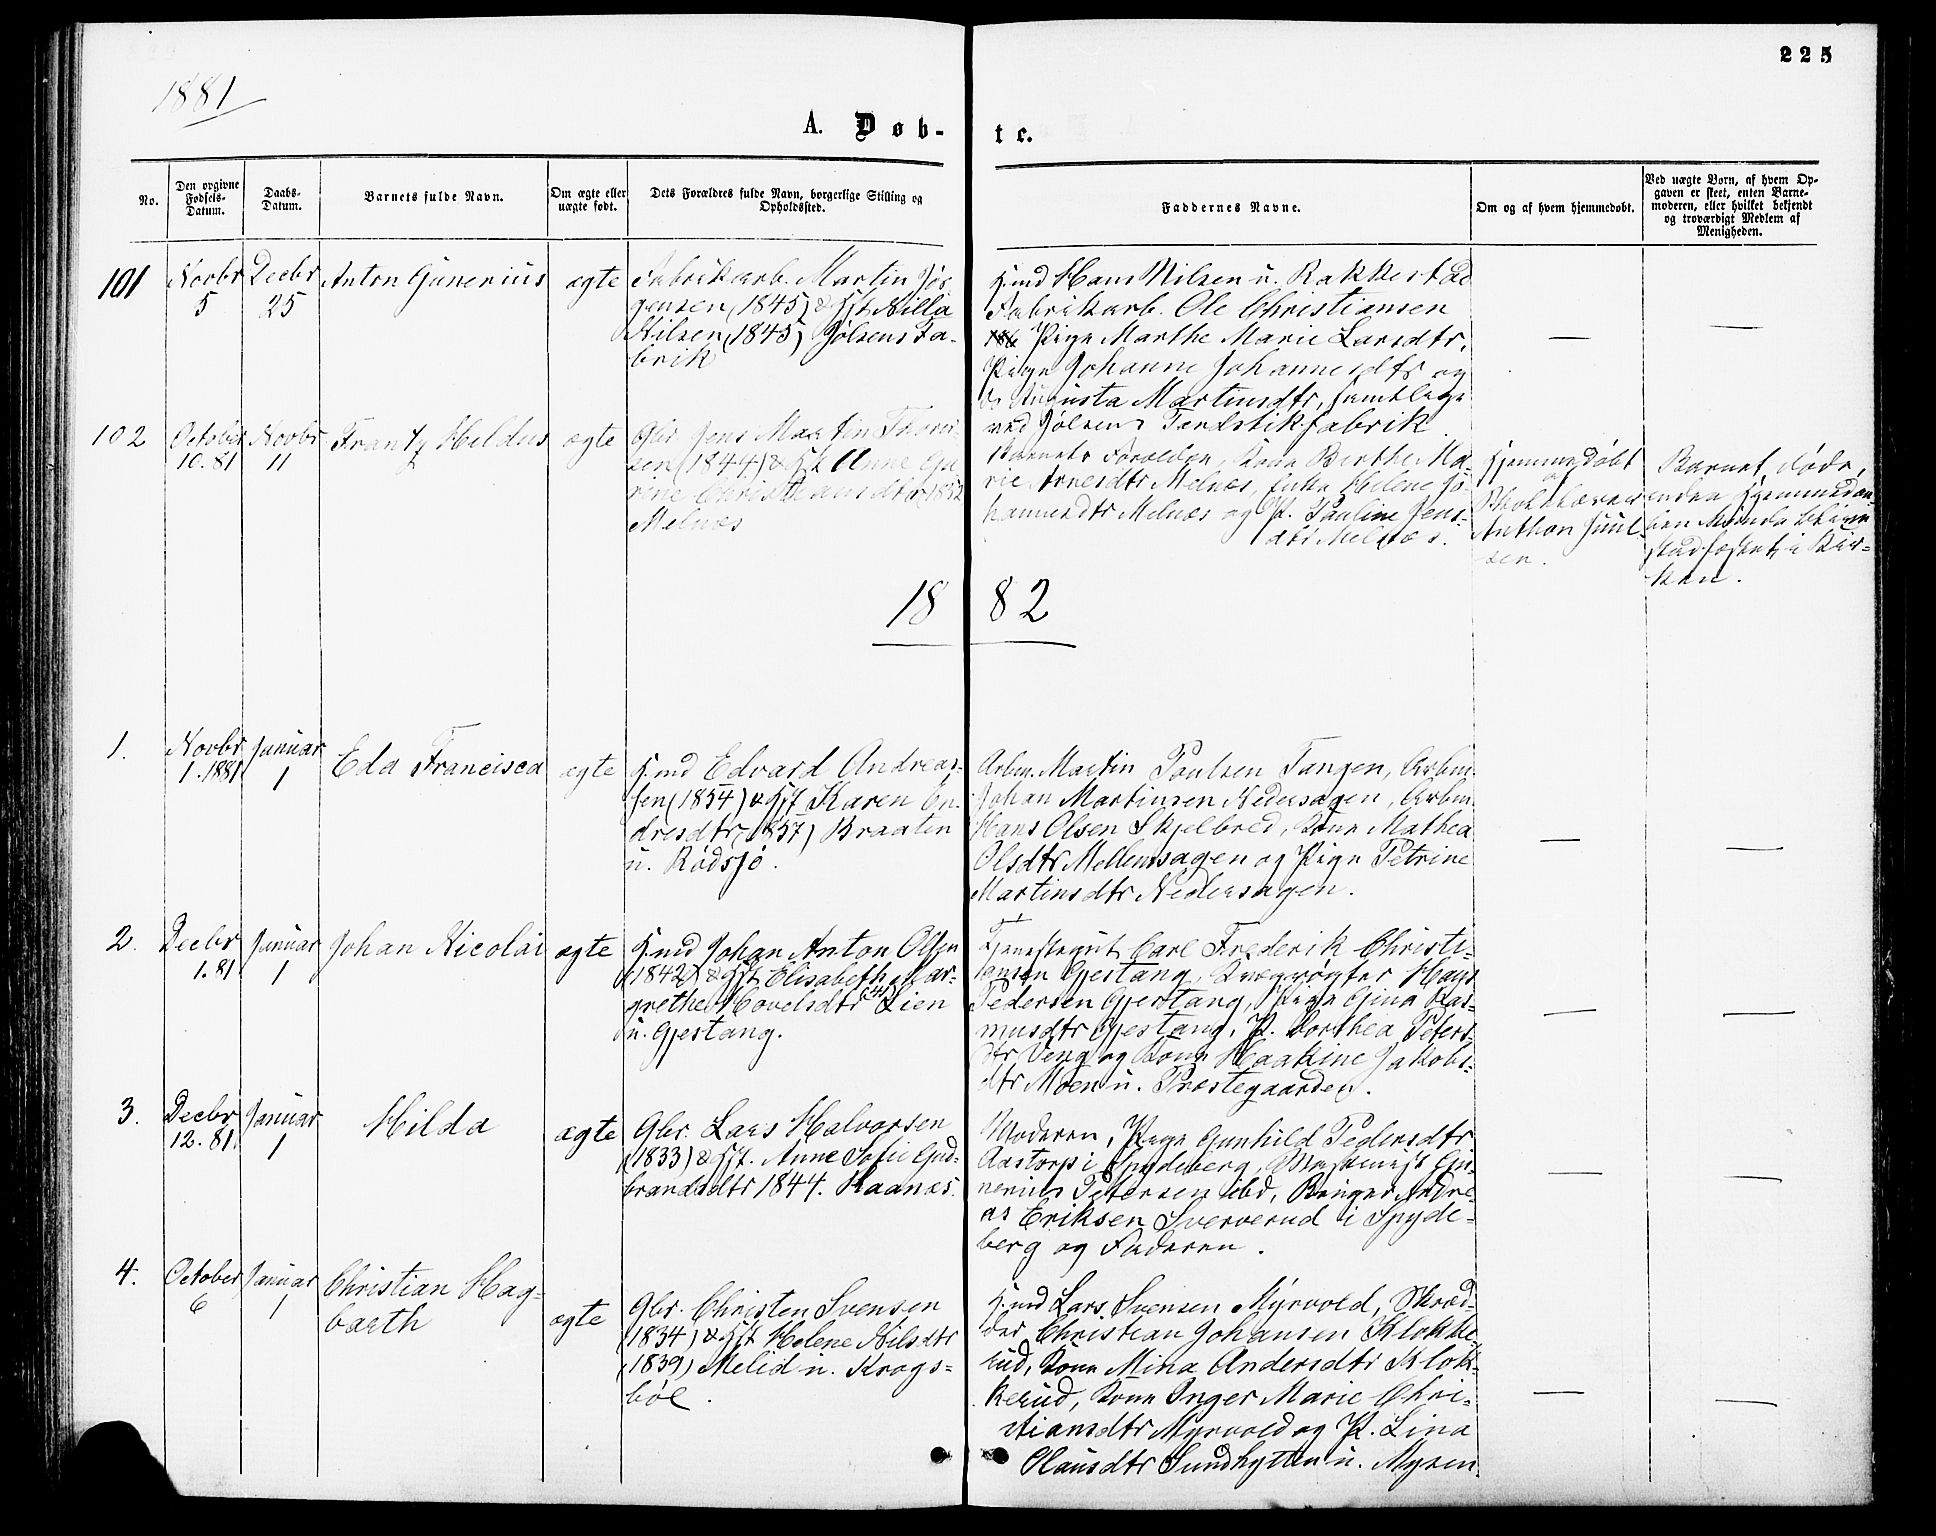 225
1881
A. Døb-
te.
No.
Den opgivne
Fødsels-
Datum.
Daabs-
Datum.
Barnets fulde Navn.
Om ægte eller
uægte født.
Dets Forældres fulde Navn, borgerlige Stilling og
Opholdssted.
Faddernes Navne.
Om og af hvem hjemmedøbt.
Ved uægte Børn, af hvem Op-
gaven er skeet, enten Barne-
moderen, eller hvilket bekjendt
og troværdigt Medlem af
Menigheden.
101
Novbr
5
Decbr
25
Anton Gunerius
ægte
Fabrikarb. Martin Jør
gensen (1845) & Hst. Nilla
Nilsen (1845) Jølsens Fa-
brik
Hmd Hans Nilsen u. Rakkestad
Fabrikarb. Ole Christiansen
Pige Marthe Marie Larsdtr,
Pige Johanne Johannesdtr og
Augusta Martinsdtr, samtlige
ved Jølsens Tændstikfabrik
—
—
102
October
10.81
Novbr
11
Frantz Heldus
ægte
Gbr. Jens Martin Thorer-
sen (1844) & Hst. Anne Gu
rine Christiansdtr 1852
Melnæs
Barnets Forældre, Kone Berthe Ma-
rie Arnesdtr Melnæs, Enke Helene Jo-
hannesdtr Melnæs og P. Pauline Jens-
dtr Melnæs.
Hjemmedøbt
af
Skolelærer
Anthon Juul-
sen.
Barnet døde,
enden Hjemmedaa-
ben
stadfæstet i Kir-
ken.
18 82
1.
Novbr
1.1881
Januar
1
Eda Francisca
ægte
Hmd Edvard Andreas-
sen (1854) & Hst Karen En-
dresdtr (1857) Braaten
u. Rødsjø.
Arbm. Martin Poulsen Tangen, Arbm.
Johan Martinsen Nedersagen, Arbm.
Hans Olsen Skjelbred, Kone Mathea
Olsdtr Mellemsagen og Pige Petrine
Martinsdtr Nedersagen.
—
—
2.
Decbr
1.81
Januar
1
Johan Nicolai
ægte
Hmd Johan Anton Olsen
(1842) & Hst. Elisabeth Mar-
grethe Hovelsdtr (41) Lien
u. Gjestang.
Tjenestegut Carl Frederik Christi-
ansen Gjestang, Kvægrøgter Hans
Pedersen Gjestang, Pige Gina Ras-
musdtr Gjestang, P. Dorthea Peters-
dtr Veng og Kone Haakine Jakobs-
dtr Moen u. Præstegaarden.
—
—
3.
Decbr
12.81
Januar
1
Hilda
ægte
Gbr. Lars Halvorsen
(1833) & Hst. Anne Sofie Gud-
brandsdtr 1844. Haanæs
Moderen, Pige Gunhild Pedersdtr
Aastorp i Spydeberg, Maskinist Gu-
nerius Petersen ibd, Bruger Andre-
as Eriksen Sververud i Spyde-
berg og Faderen.
—
—
4.
October
6
Januar
1
Christian Hag-
barth
ægte
Gbr. Christen Svensen
(1834) & Hst Helene Nilsdtr
(1839) Melid u. Krogs-
bøl.
Hmd Lars Svensen Myrvold, Skræd-
der Christian Johansen Klokke-
rud, Kone Mina Andersdtr Klok-
kerud, Kone Inger Marie Chri-
stiansdtr Myrvold og P. Lina
Olausdtr Sundhytten u. Mysen.
—
—